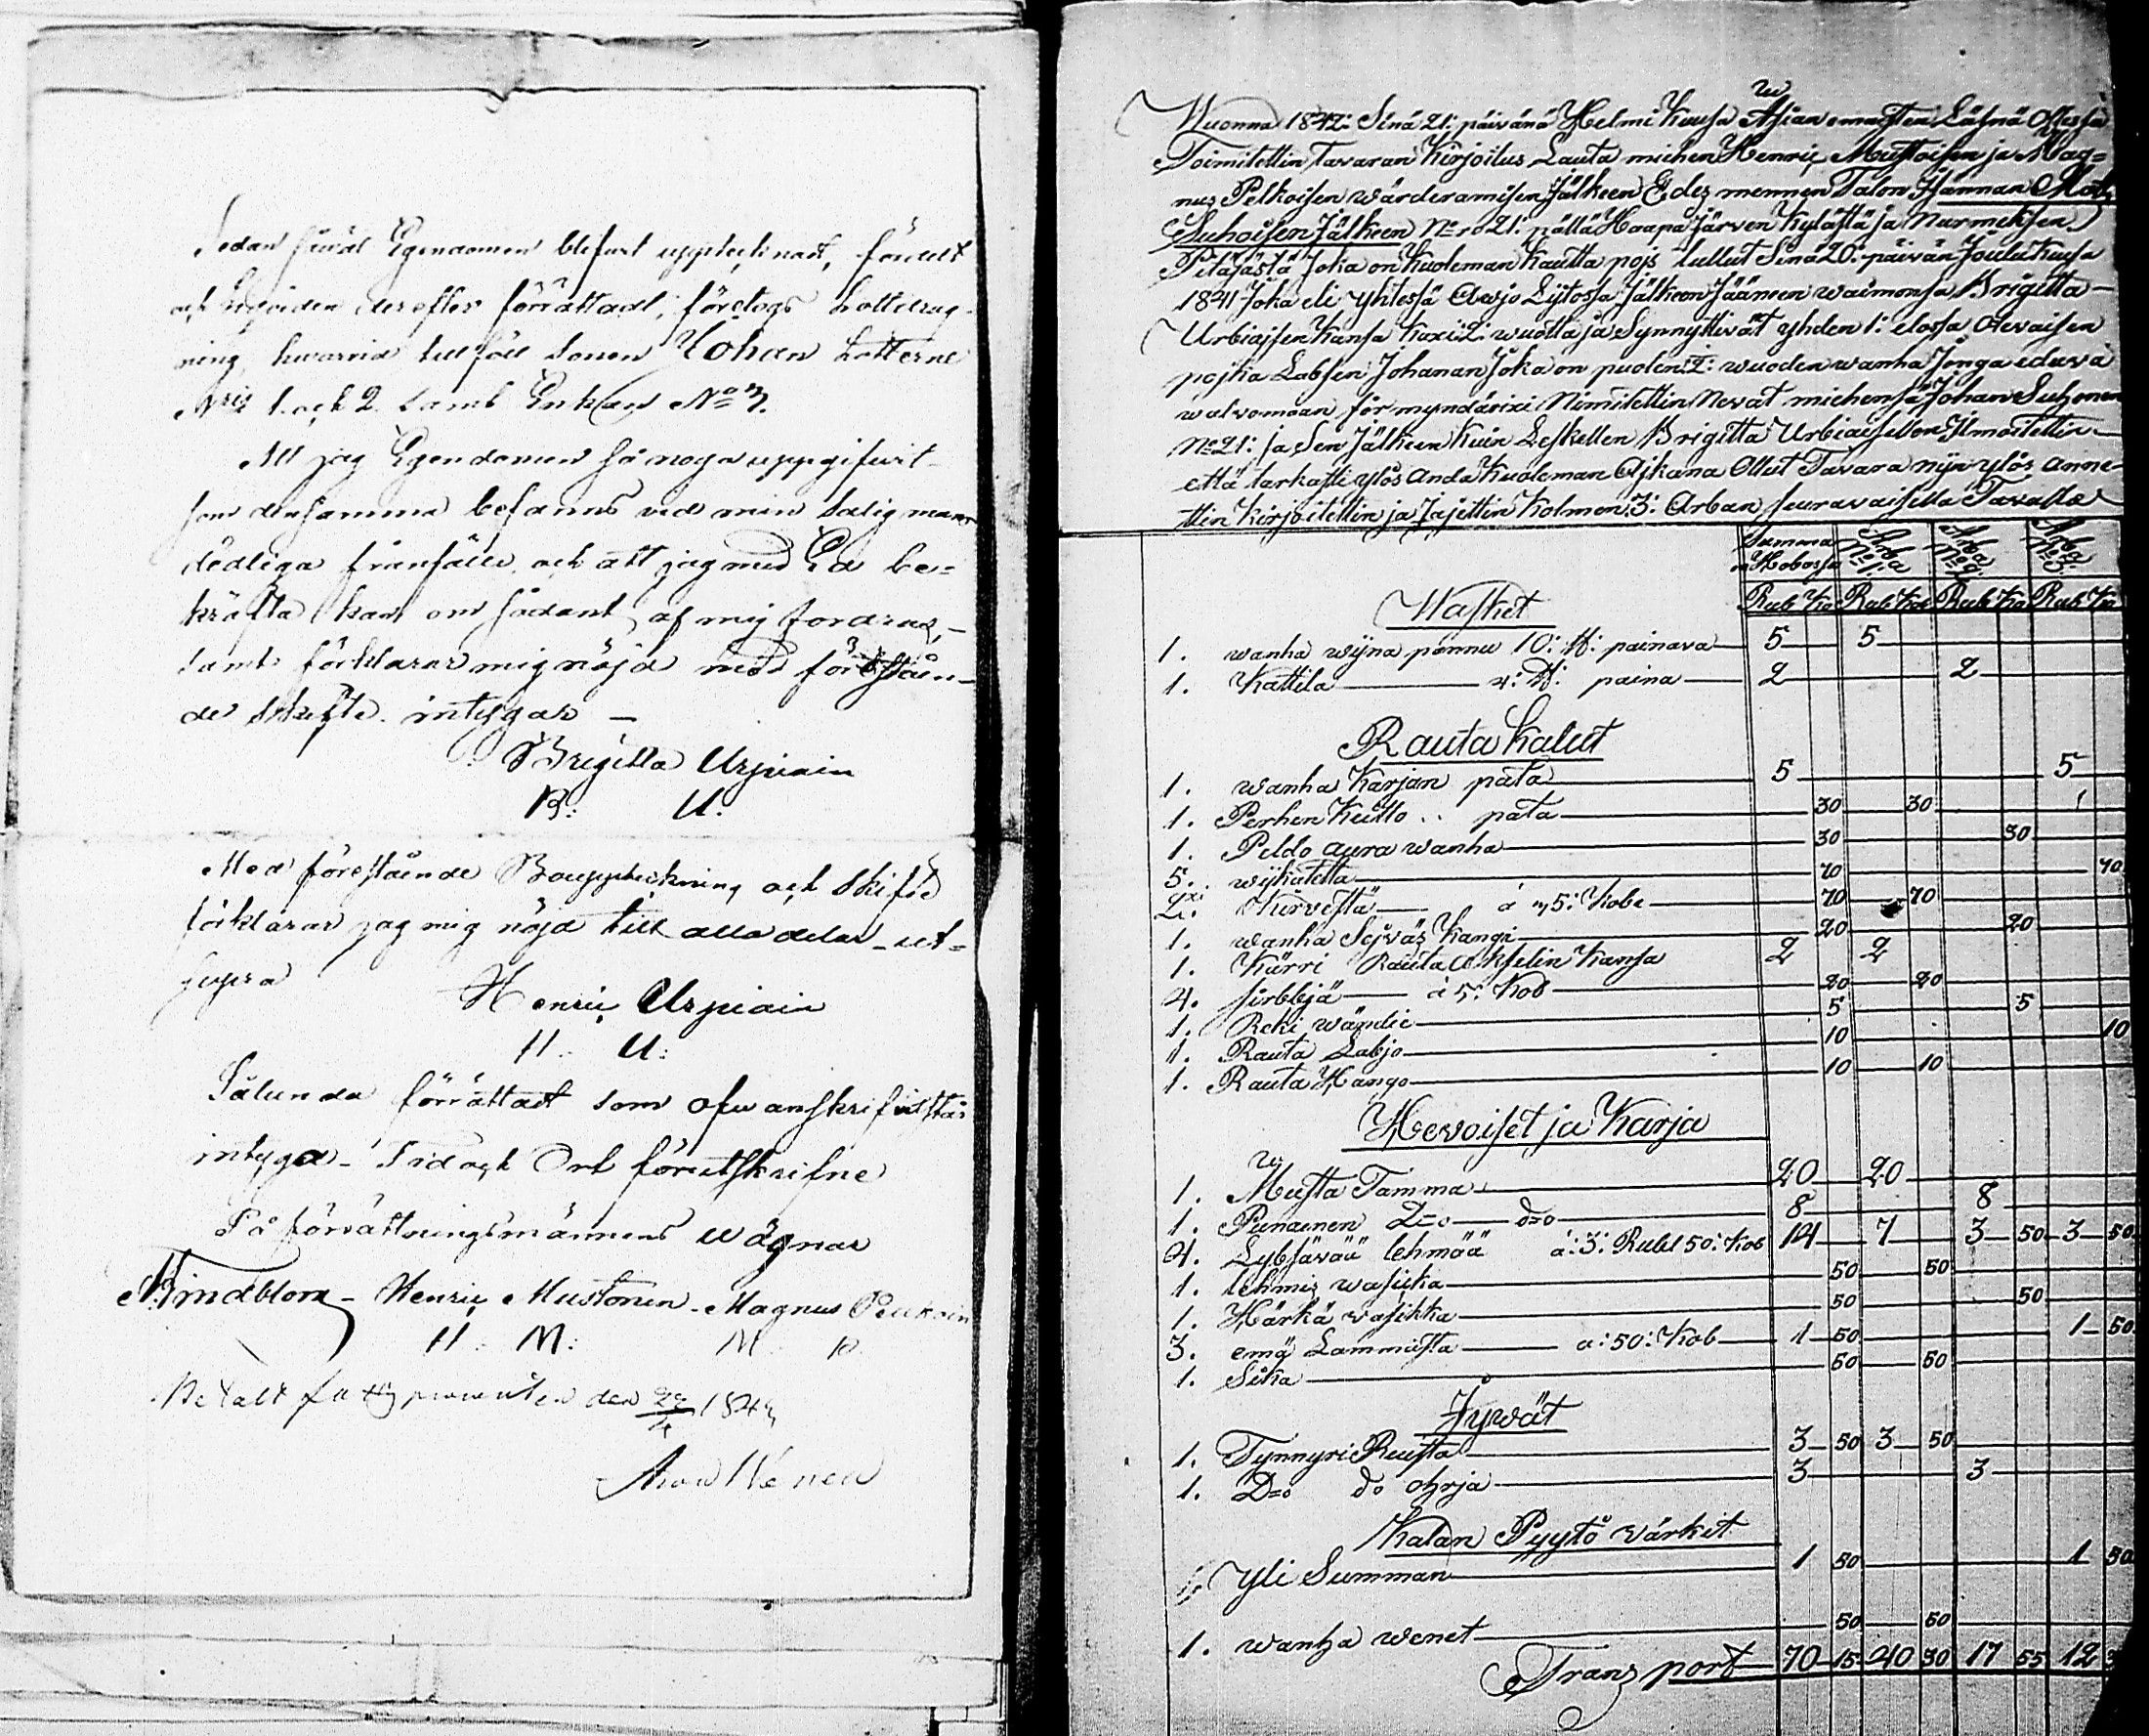 Sedan siwäl Egendomen blefwit upptecknad, fördelt
och derefter förrättadt, företogs Lottdrag-
ning, hwarvid tillföll Sonen Johan Lotterne
N:ris 1. och 2. samt Enkan N:o 3.
Att jag Egendomen så noga uppgifwit
som densamma befanns wid min Salig mans
dödliga frånfälle, och att jag med Ed be-
kräfta kan om sådant af mig fordras,
samt förklarar mig nöjd med föreståen-
de skifte. intygar —
Brigitta Urpiain
B: U.
Med förestående Bouppteckning och Skifte
förklarar jag mig nöjd till alla delar
Henric Urpiain
H: U:
Sålunda förrättadt som ofwanskrifwit står
intyga. Tid och Ort förutskrifne
På förrättningsmännens wägnar
Lindblom Henric Mustonen Magnus Pelkoin
H: M: M. P.
Betalt fattig procenten den 22/4 1842

Wuonna 1842: Sinä 21: päivänä Helmi Kuusa Asian omaisten Läsnä Ollessa
Toimitettin Tavaran Kirjoitus Lauta miehen Henric Mustoisen ja Mag=
nus Pelkoisen wärderamisen Jälkeen Edes mennen Talon Isännan Mats
Suhoisen Jälkeen N:ro 21: pällä Haapa Järven Kylästä ja Nurmeksen
Pitäjästä Joka on Kuoleman Kautta pojs tullut Sinä 20: päivän Joulu Kuusa
1841 Joka eli yhtessä Awjo Lijtossa Jälkeen Jääneen waimonsa Brigitta
Urbiaisen Kansa Kaxi 2: wuotta ja Synnyttivät yhden 1: elossa Olevaisen
pojka Labsen Johanan Joka on puolen ½: wuoden wanha Jonga edwä
walvomaan förmyndärixi Nimitettin Nevat miehensä Johan Suhonen
N:o 21: ja Sen Jälkeen Kuin Leskellen Brigitta Urbiaisellen Ilmoitettin
että tarkasti ylös Anda Kuoleman Ajkana Ollut Tavara nijn ylös anne-
ttin Kirjoitettin ja Jajettin Kolmen 3: Arban seuravaisella Tavalla
Summa Hobossa Arba N:o 1. Arba N:o 2. Arba N:o 3.
Rub Ko Rub Kob Rub Ko Rub Ko
Wasket
1. wanha wijna pannu 10: ℔: painava 5 5
1. Kattila 4: ℔: paina 2 2
Rauta Kalut
1. wanha Karjan pata 5 5
1. Perhen Keitto .. pata 30 30
1. Peldo aura wanha 30 30
5. wijkatetta 70 70
2: Kirvestä 70 70
1. wanha Sejväs Kangi 20 20
1. Kärri Rauta akselin Kansa 2 2
4. sirbbijä á 5: Kob 20 20
1. Reki wändic 5 5
1. Rauta Labjo 10 10
1. Rauta Hango 10 10
Hevoiset ja Karja
1. Musta Tamma 20 20
1. Punainen D:o d:o 8 8
4. Lybsävää lehmää á: 3: Rubel 50: Kob 14 7 3 50 3 50
1. lehmis wasicka 50 50
1. Härkä vasikka 50 50
3. emä Lammasta a: 50: Kob 1 50 1 50
1. Sika 50 50
Jywät
1. Tynnyri Ruista 3 50 3 50
1. D:o do ohrja 3 3
Kalan Pyytö värkit
Yli Summan 1 50 1 50
1. wanha wenet 50 50
Transport 70 15 40 30 17 55 12